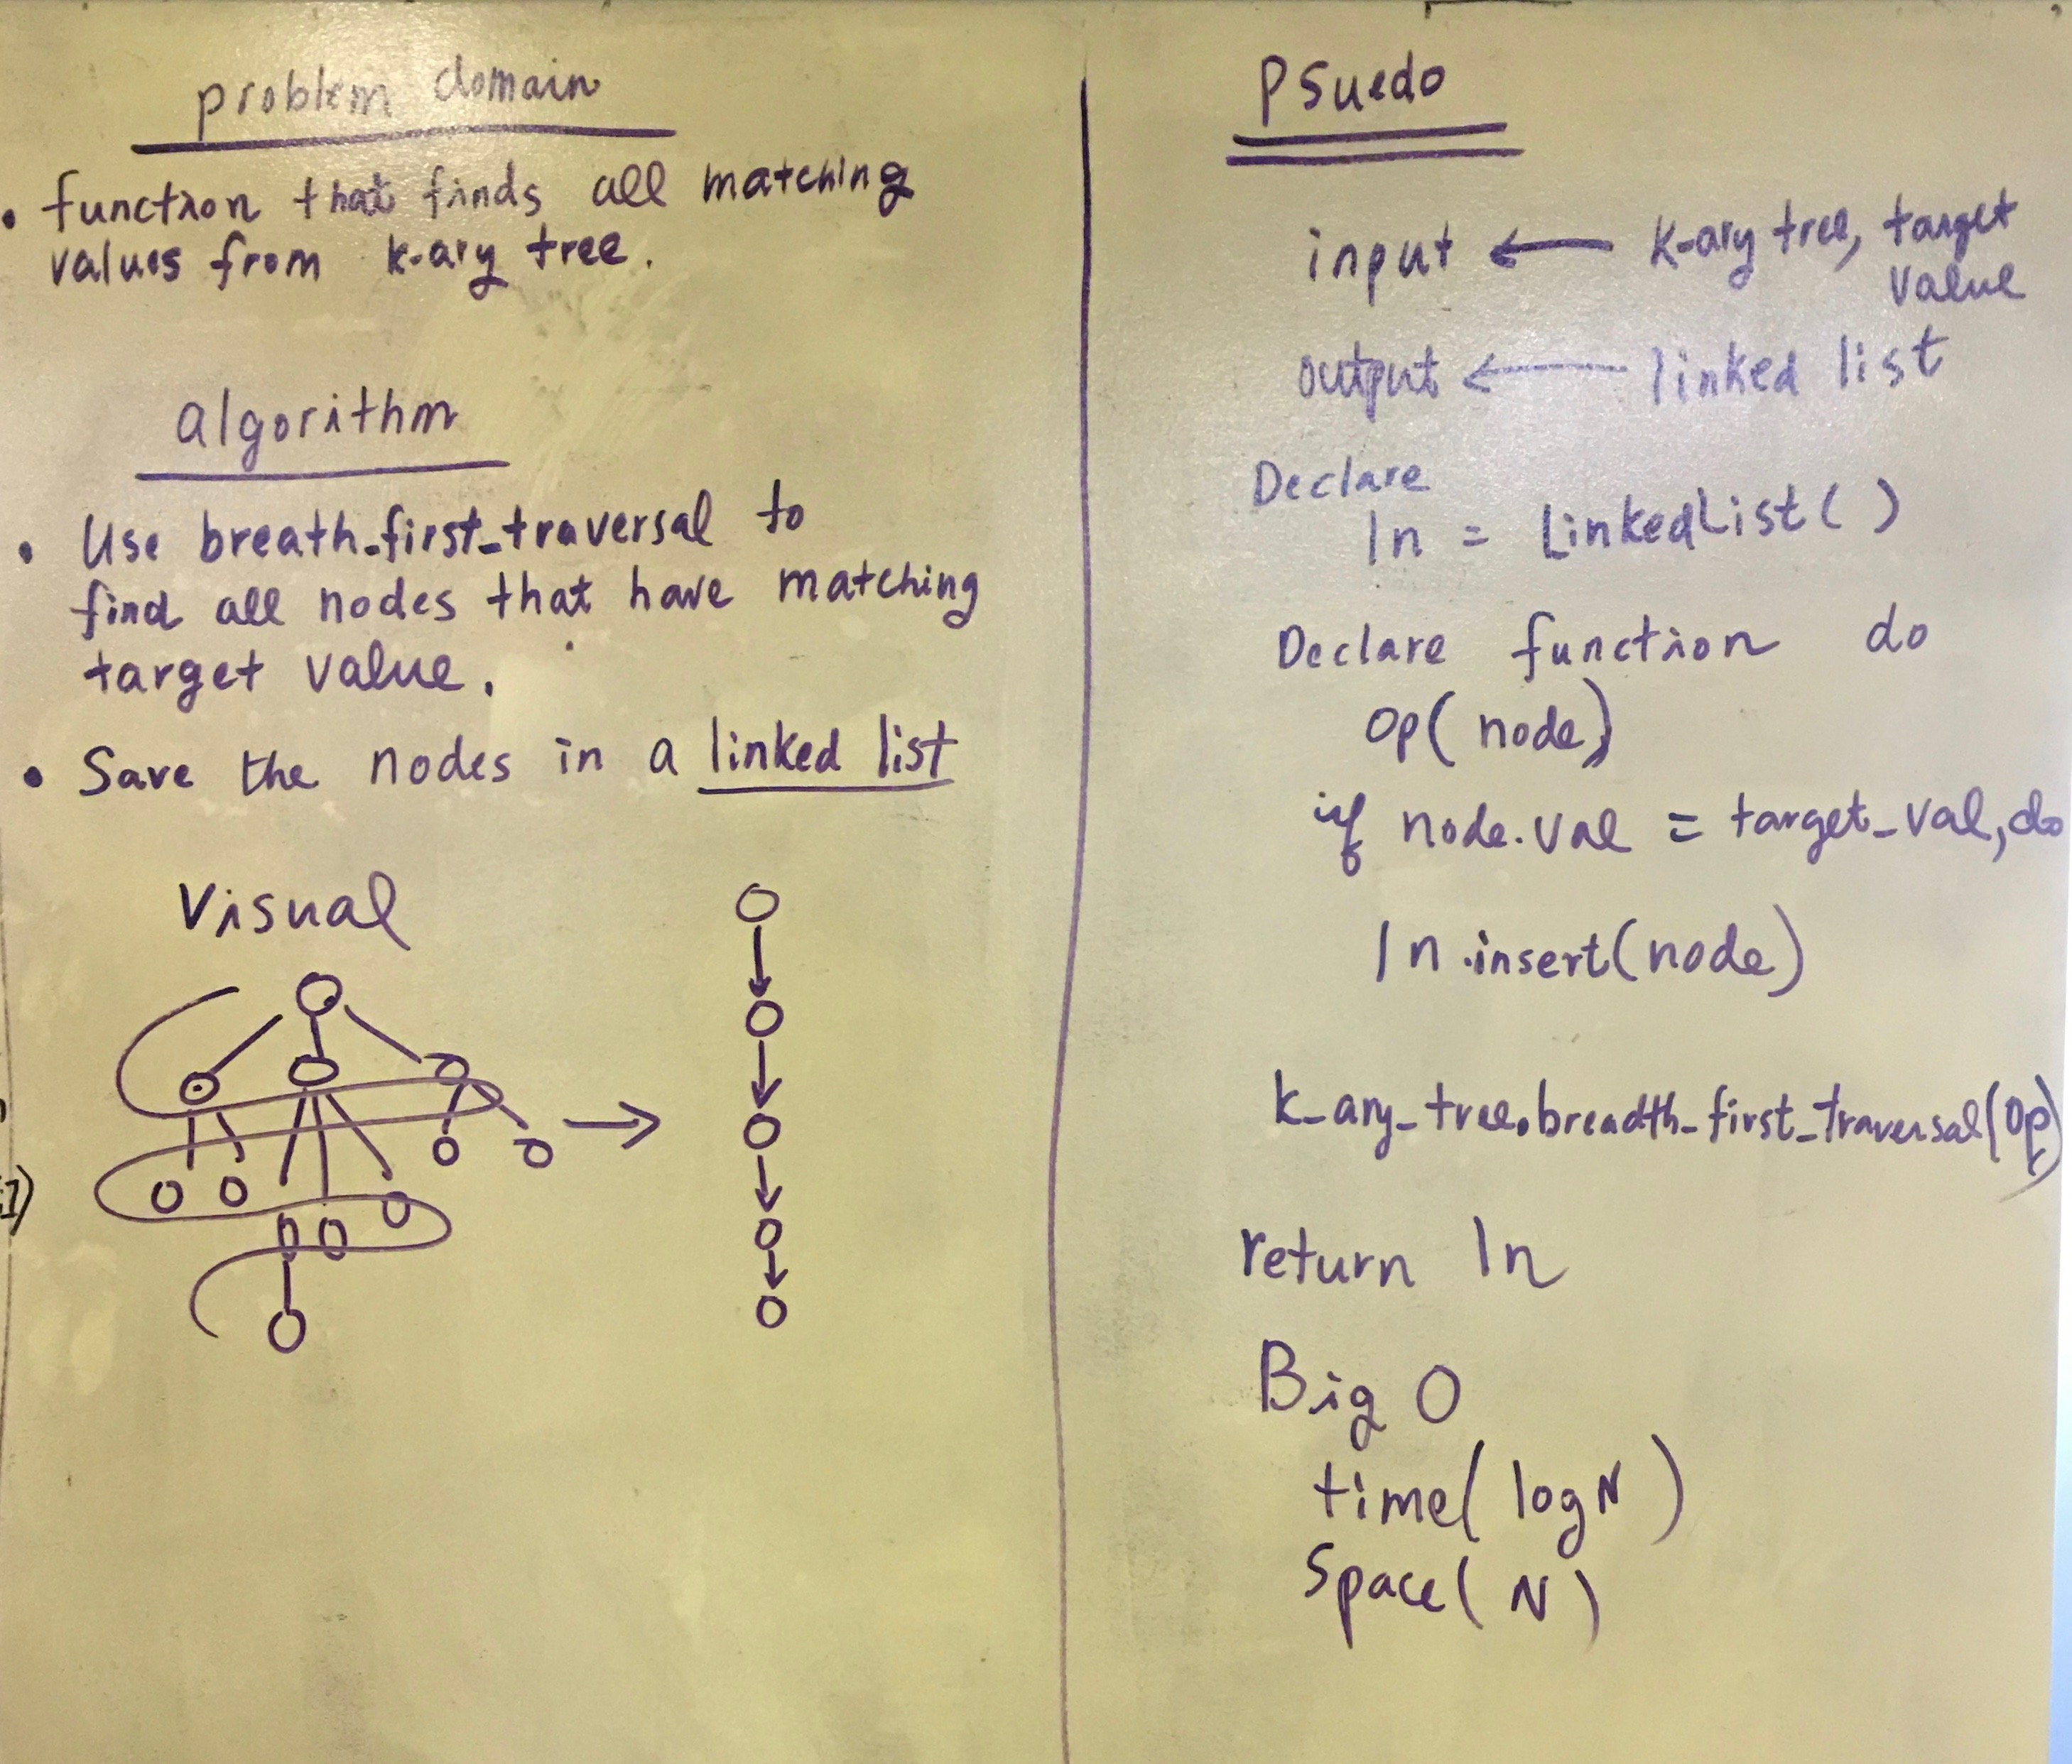 problem domain
• function that finds all matching
values from k-ary tree.
algorithm
• Use breath-first-traversal to
find all nodes that have matching
target value.
• Save the nodes in a linked list
Visual
Psuedo
input ← k-ary tree, target
value
output ← linked list
Declare
ln = LinkedList( )
Declare function do
op( node)
if node.val = target_val, do
ln.insert(node)
k_ary_tree.breadth_first_traversal(op)
return ln
Big O
time( log N )
Space( N )